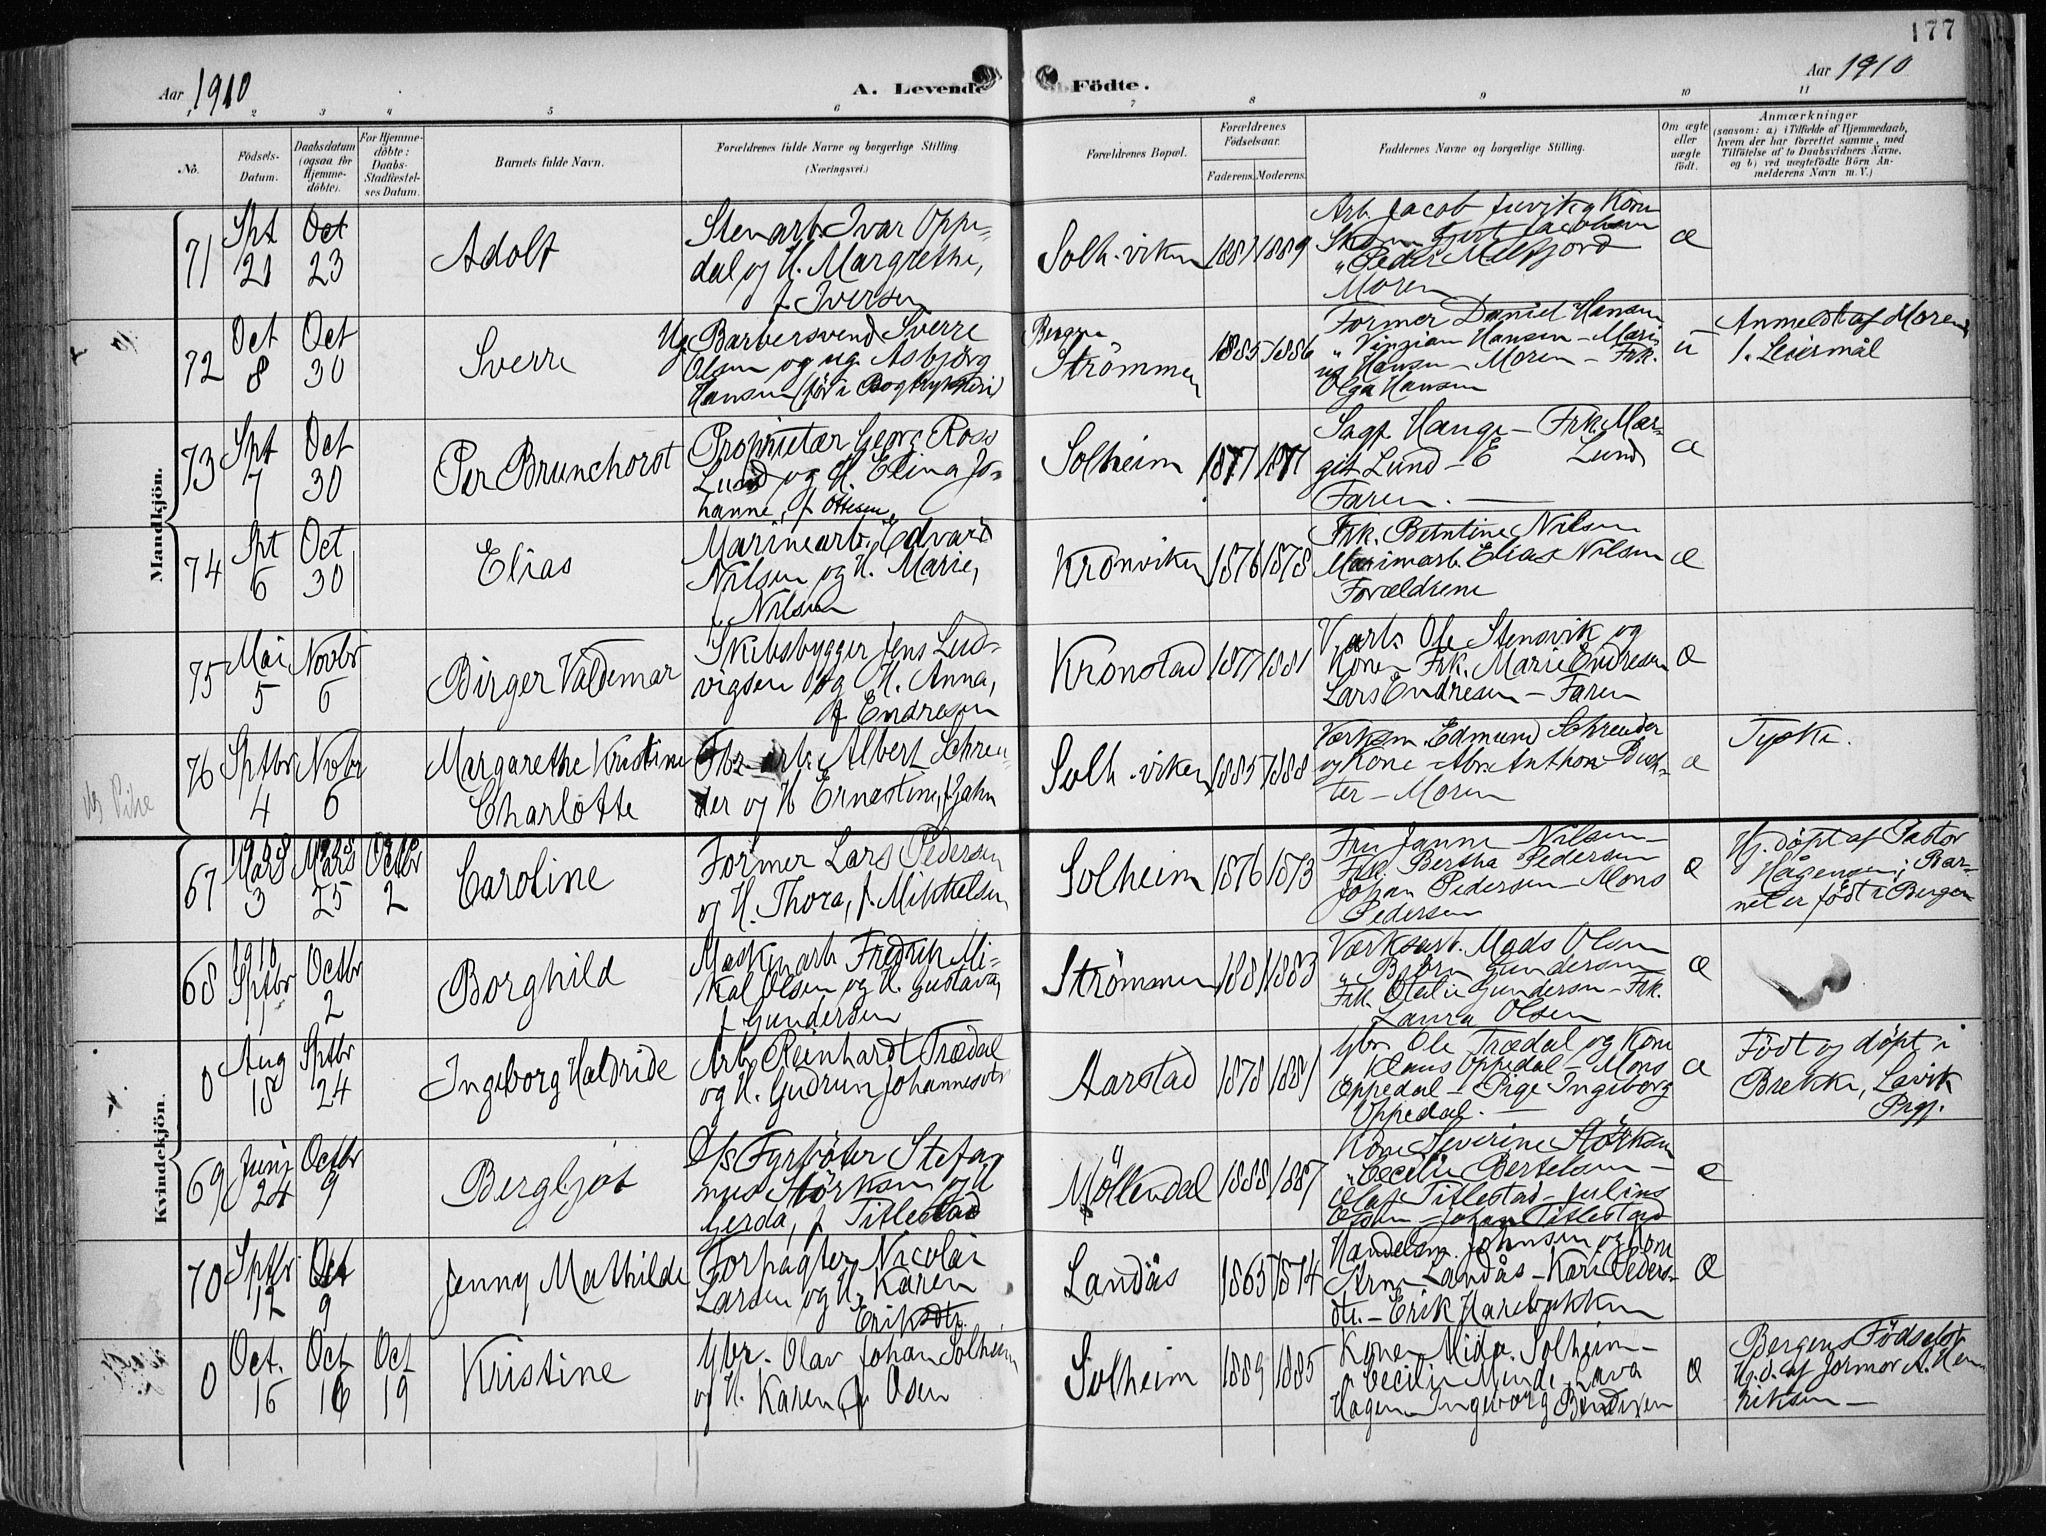 177
Aar 1910
A. Levende Födte.
Aar 1910
1 2 3 4 5 6 7 8 9 10 11
No.
Födsels-
Datum.
Daabsdatum
(ogsaa for
Hjemme-
döbte).
For Hjemme-
döbte:
Daabs-
Stadfæstel-
ses Datum.
Barnets fulde Navn.
Forældrenes fulde Navne og borgerlige Stilling.
(Næringsvei.)
Forældrenes Bopæl.
Forældrenes
Födselsaar.
Faderens. Moderens.
Faddernes Navne og borgerlige Stilling.
Om ægte
eller
uægte
födt.
Anmærkninger
(saasom: a) i Tilfælde af Hjemmedaab,
hvem der har forrettet samme, med
Tilföielse af to Daabsvidners Navne,
og b) ved uegtefödte Börn An-
melderens Navn m. V.)
Mandkjön.
71
Spt
21
Oct
23
Adolf
Stenarb. Ivar Oppe-
dal og H. Margrethe,
f. Iversen
Solh.viken
1881 1889
Arb. Jacob Juvik og Kone
Skom. Gjert Jacobsen
" Peder Melfjord
Moren
æ
72
Oct
8
Oct
30
Sverre
Ug Barbersvend Sverre
Olsen og ug. Asbjörg
Hansen (før i Bogtrykkeri)
Bergen
Strömmen
1885 1886
Former Daniel Hansen
" Hansen - Mari-
us Hansen - Moren - Frk.
Olga Hansen
u
Anmeldt af Moren
1. Leiermål
73
Spt
7
Oct
30
Per Brunchorst
Proprietær Georg Ross
Lund og H. Elina Jo-
hanne, f. Ottesen
Solheim
1871 1877
Sagf. Hauge - Frk. Mar-
git Lund - E Lund
Faren.
æ
74
Spt
6
Oct
30
Elias
Marinearb. Edvard
Nilsen og H. Marie,
f. Nilsen
Kronviken
1876 1878
Frk. Berntine Nilsen
Marinarb. Elias Nilsen
Forældrene
æ
75
Mai
5
Novbr
6
Birger Valdemar
Skibsbygger Jens Lud-
vigsen og H. Anna,
f. Endresen
Kronstad
1877 1881
V. arb. Ole Stensvik og
Kone - Frk. Marie Endresen
Lars Endresen - Faren
æ
76
Sptbr
4
Novbr
6
Margarethe Kristine
Charlotte
Fbr. arb. Albert Schreu-
der og H. Ernestine, f. Jahn
Solh.viken
1885 1888
Værksm. Edmund Schreuder
og Kone
ter - Moren
æ
Tyske.
Kvindekjön.
67
1908
Mars
3
1908
Mars
25
1910
Octbr
2
Caroline
Former Lars Pedersen
og H. Thora, f. Mikkelsen
Solheim
1876 1873
Fru Janna Nilsen -
Frk. Bertha Pedersen
Johan Pedersen - Mons
Pedersen
æ
Hj. döpt af Pastor
Hågensen; Bar-
net er født i Bergen
68
1910
Sptbr
1
Octbr
2
Borghild
Maskinarb. Fredrik Mi-
kal Olsen og H. Gustava,
f. Gundersen
Strömmen
1881 1883
Værksarb. Mads Olsen
" Björn Gundersen
Frk. Otalie Gundersen - Frk.
Laura Olsen
æ
0
Aug
15
Sptbr
24
Ingeborg Haldride
Arb. Reinhardt Trædal
og H. Gudrun Johannesdtr
Aarstad
1878 1881
Gbr. Ole Trædal og Kone
Klaus Oppedal - Mons
Oppedal - Pige Ingeborg
Oppedal.
æ
Födt og döpt i
Brekke, Lavik
Prgj.
69
Juni
24
Octbr
9
Bergljot
D/s Fyrböter Stefa-
nus Störksen og H
Gerda, f. Titlestad
Möllendal
1888 1887
Kone Severine Störksen
" Cecilie Bertelsen -
Olaf Titlestad - Julius
- Johan Titlestad
æ
70
Sptbr
12
Oct
9
Jenny Mathilde
Forpagter Nicolai
Larsen og H. Karen
Eriksdtr.
Landås
1863 1874
Handelsm. Johnsen og Kone
Arne Landås - Kari Peders-
dtr. - Erik Harebakken
æ
0
Oct.
15
Oct
16
Oct
19
Kristine
Gbr. Olav Johan Solheim
og H. Karen, f. Osen
Solheim
1889 1885
Kone Mida Solheim -
" Cecilie Minde Lava
Hagen Ingeborg Bendixen
æ
Bergens Födselst
Hj. d. af Jormor A. Hen-
riksen -